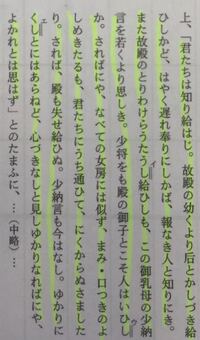 上、「君たちは知り給はじ。故殿の幼くより后とかしづき給
ひしかど、はやく遅れ奉りにしかば、報なき人と知りにき。
また故殿のとりわけらうたうし給ひしも、この御乳母の少納
言を若くより思しき。少将をも殿の御子とこそ人はいひし
か。さればにや、なべての女房には似ず、まみ・口つきのよ
しめきたるも、君たちにうち通ひて、にくからぬさました
り。されば、殿も失せ給ひぬ。少納言も今はなし。ゆかりに
くしとにはあらねど、心づきなしと見しゆかりなればにや、
よかれとは思はず」とのたまふに、…（中略）…